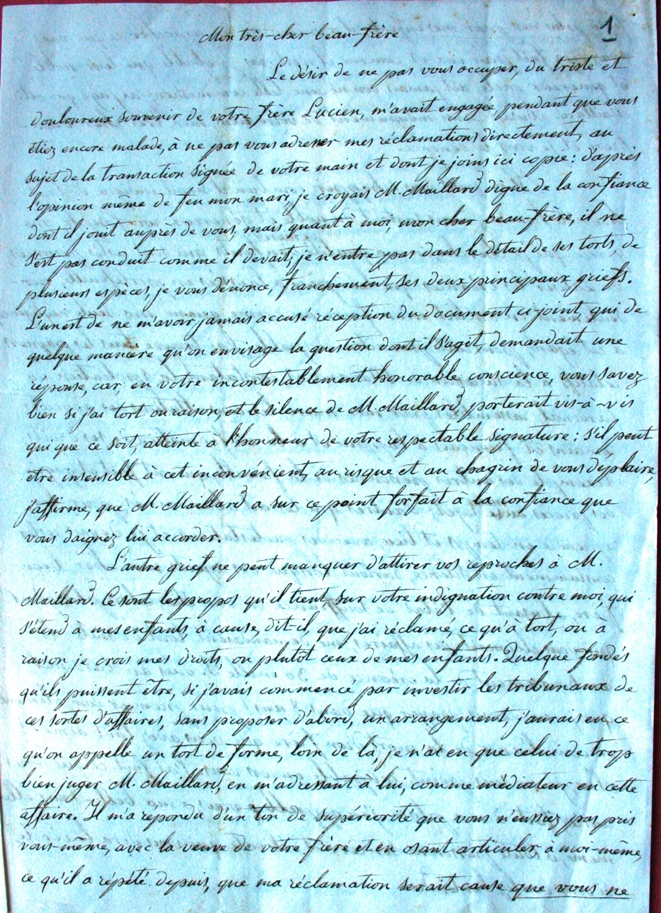 1
Mon très-cher beau-frère
Le désir de ne pas vous occuper, du triste et
douloureux souvenir de votre frère Lucien, m'avait engagée pendant que vous
étiez encore malade, à ne pas vous adresser mes réclamations directement, au
sujet de la transaction signée de votre main et dont je joins ici copie : d'après
l'opinion même de feu mon mari, je croyais M. Maillard digne de la confiance
dont il jouit auprès de vous, mais quant à moi, mon cher beau-frère, il ne
s'est pas conduit comme il devait, je n'entre pas dans le détail de ses torts, de
plusieurs espèces, je vous dénonce, franchement, ses deux principaux griefs.
L'un est de ne m'avoir jamais accusé réception du document ci-joint, qui de
quelque manière qu'on envisage la question dont il s'agit, demandait une
réponse, car en votre incontestablement honorable conscience, vous savez
bien si j'ai tort ou raison, et le silence de M. Maillard, porterait vis-à-vis
qui que ce soit, atteinte à l'honneur de votre respectable signature : s'il peut
être insensible à cet inconvenient, au risque et au chagrin de vous déplaire,
j'affirme, que M. Maillard a sur ce point forfait à la confiance que
vous daignez lui accorder.
L'autre grief ne peut manquer d'attirer vos reproches à M.
Maillard. Ce sont les propos qu'il tient, sur votre indignation contre moi, qui
s'étend à mes enfants, à cause, dit-il, que j'ai réclamé, ce qu'à tort, ou à
raison je crois mes droits, ou plutôt ceux de mes enfants. Quelque fondés
qu'ils puissent être, si j'avais commencé par investir les tribunaux de
ces sortes d'affaires, sans proposer d'abord, un arrangement, j'aurais eu ce
qu'on appelle un tort de forme, loin de là, je n'ai eu que celui de trop
bien juger M. Maillard, en m'adressant à lui, comme médiateur en cette
affaire. Il m'a repondu d'un ton de supériorité que vous n'eussiez pas pris
vous-même, avec la veuve de votre frère et en osant articuler, à moi-même,
ce qu'il a répété depuis, que ma réclamation serait cause que vous ne